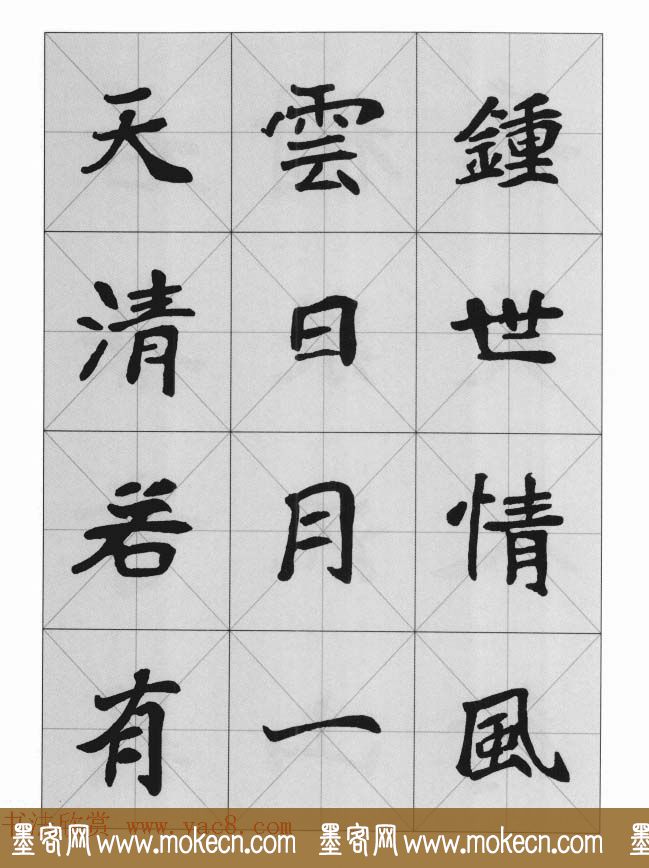 鍾世情風
雲日月一
天清若有
书法欣赏 www.yac8.com
墨客网 www.mokecn.com 墨客网 www.mokecn.com